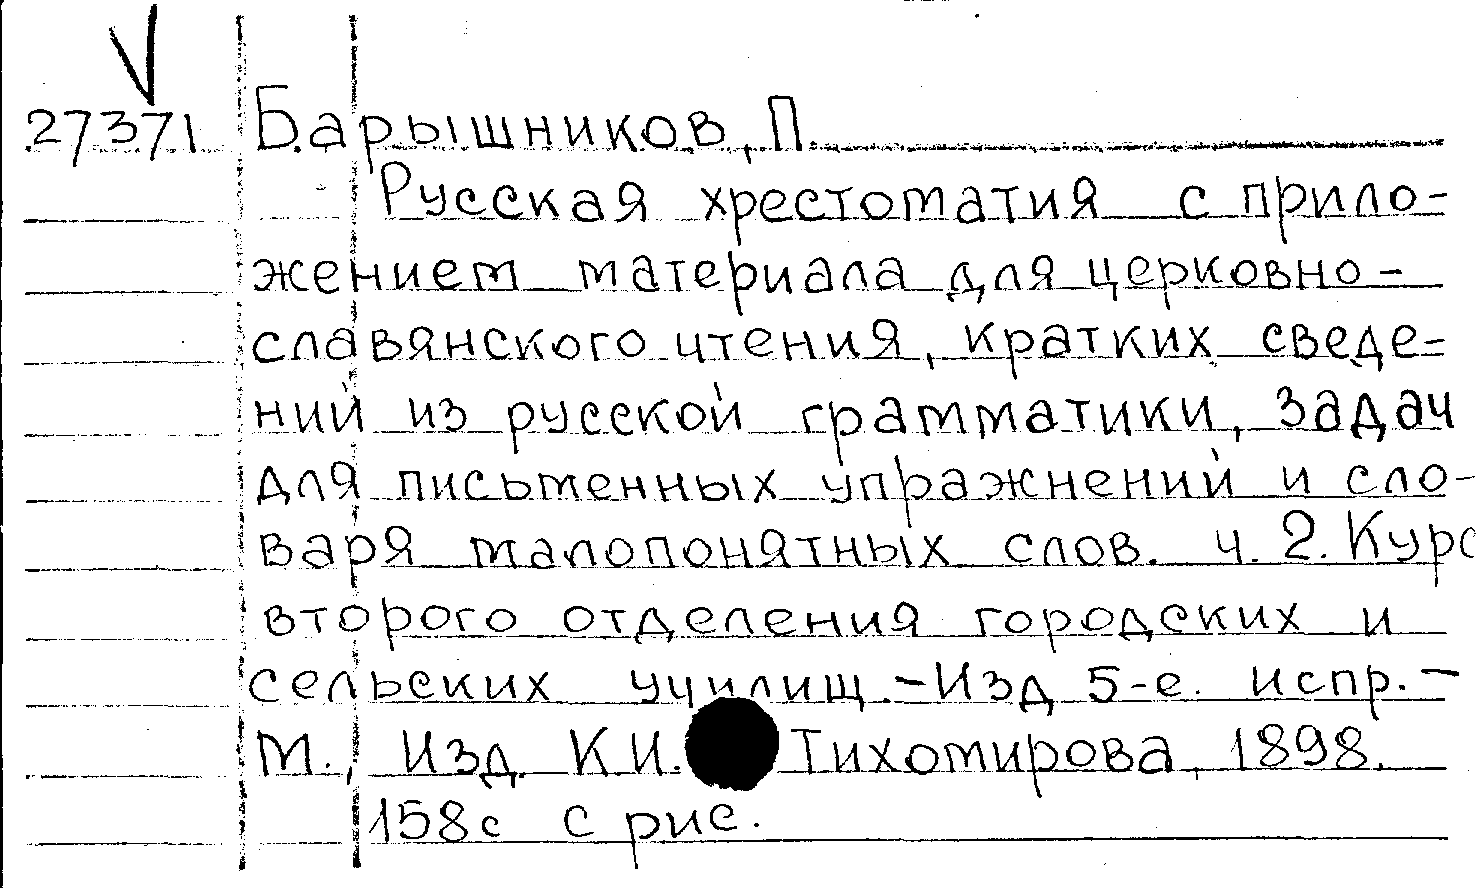 27371 Барышников, П.
Русская хрестоматия с прило-
жением материала для церковно-
славянского чтения, кратких сведе-
ний из русской грамматики, задач
для письменных упражнений и сло-
варя малопонятных слов. ч. 2. Курс
второго отделения городских и
сельских училищ.-Изд 5-е. испр.-
М., Изд. К.И. Тихомирова, 1898.
158с с рис.